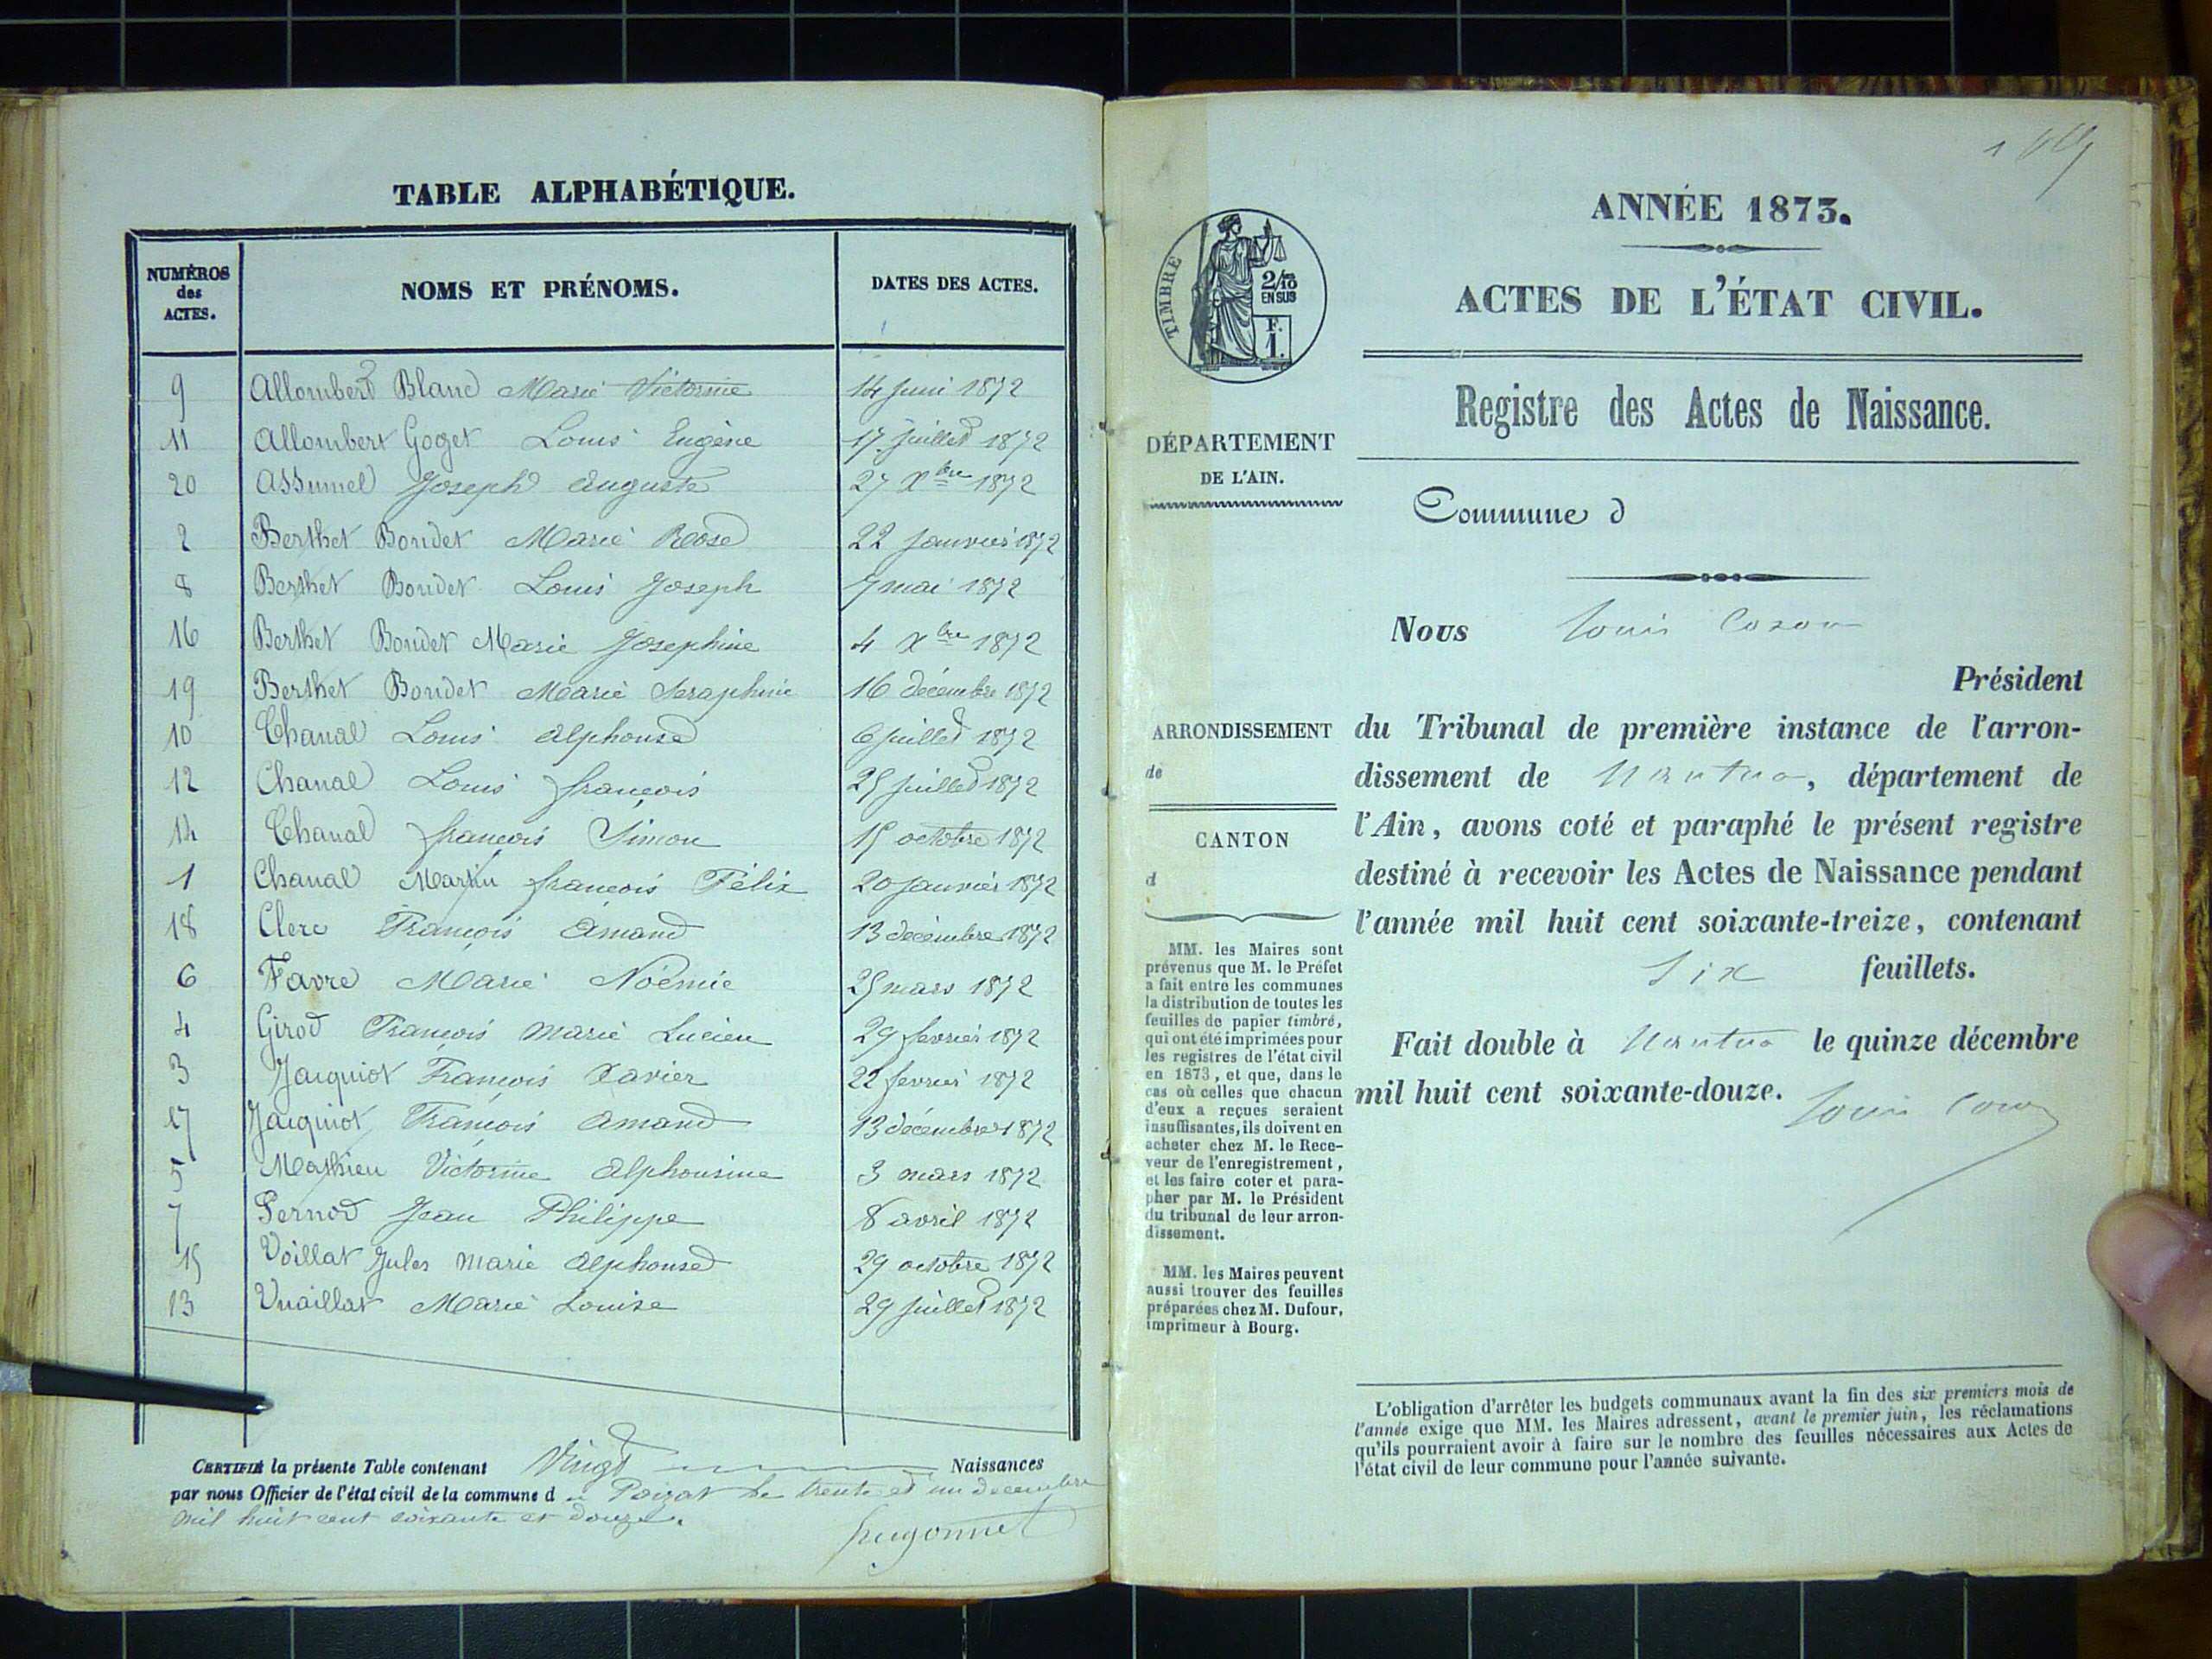 TABLE ALPHABÉTIQUE.
NUMÉROS des ACTES. NOMS ET PRÉNOMS. DATES DES ACTES.
9 Allombert Blanc Marie Victorine 14 juin 1872
11 Allombert Goget Louis Eugène 17 juillet 1872
20 Assumel Joseph Auguste 27 Xbre 1872
2 Berthet Bondet Marie Rose 22 janvier 1872
8 Berthet Bondet Louis Joseph 7 mai 1872
16 Berthet Bondet Marie Josephine 4 Xbre 1872
19 Berthet Bondet Marie Seraphine 16 décembre 1872
10 Chanal Louis Alphonse 6 juillet 1872
12 Chanal Louis françois 25 juillet 1872
14 Chanal françois Simon 15 octobre 1872
1 Chanal Martin françois Félix 20 janvier 1872
18 Clerc François Amand 13 décembre 1872
6 Favre Marie Noémie 25 mars 1872
4 Girod François Marie Lucien 29 fevrier 1872
3 Jacquiot François Xavier 22 fevrier 1872
17 Jacquiot François Amand 13 décembre 1872
5 Mathieu Victorine Alphonsine 3 mars 1872
7 Pernod Jean Philippe 8 avril 1872
15 Voillat Jules Marie Alphonse 29 octobre 1872
13 Vuaillat Marie Louise 29 juillet 1872
CERTIFIÉ la présente Table contenant Vingt Naissances
par nous Officier de l'état civil de la commune d u Poizat le trente et un decembre
mil huit cent soixante et douze.
hugonnet
ANNÉE 1873.
ACTES DE L'ÉTAT CIVIL.
Registre des Actes de Naissance.
TIMBRE
2/10
EN SUS
F.
1.
DÉPARTEMENT
DE L'AIN.
ARRONDISSEMENT
de
CANTON
d
MM. les Maires sont
prévenus que M. le Préfet
a fait entre les communes
la distribution de toutes les
feuilles de papier timbré,
qui ont été imprimées pour
les registres de l'état civil
en 1873, et que, dans le
cas où celles que chacun
d'eux a reçues seraient
insuffisantes, ils doivent en
acheter chez M. le Rece-
veur de l'enregistrement,
et les faire coter et para-
pher par M. le Président
du tribunal de leur arron-
dissement.
MM. les Maires peuvent
aussi trouver des feuilles
préparées chez M. Dufour,
imprimeur à Bourg.
Commune d
Nous Louis Cozon
Président
du Tribunal de première instance de l'arron-
dissement de Nantua, département de
l'Ain, avons coté et paraphé le présent registre
destiné à recevoir les Actes de Naissance pendant
l'année mil huit cent soixante-treize, contenant
Six feuillets.
Fait double à Nantua le quinze décembre
mil huit cent soixante-douze.
Louis Cozon
L'obligation d'arrêter les budgets communaux avant la fin des six premiers mois de
l'année exige que MM. les Maires adressent, avant le premier juin, les réclamations
qu'ils pourraient avoir à faire sur le nombre des feuilles nécessaires aux Actes de
l'état civil de leur commune pour l'année suivante.